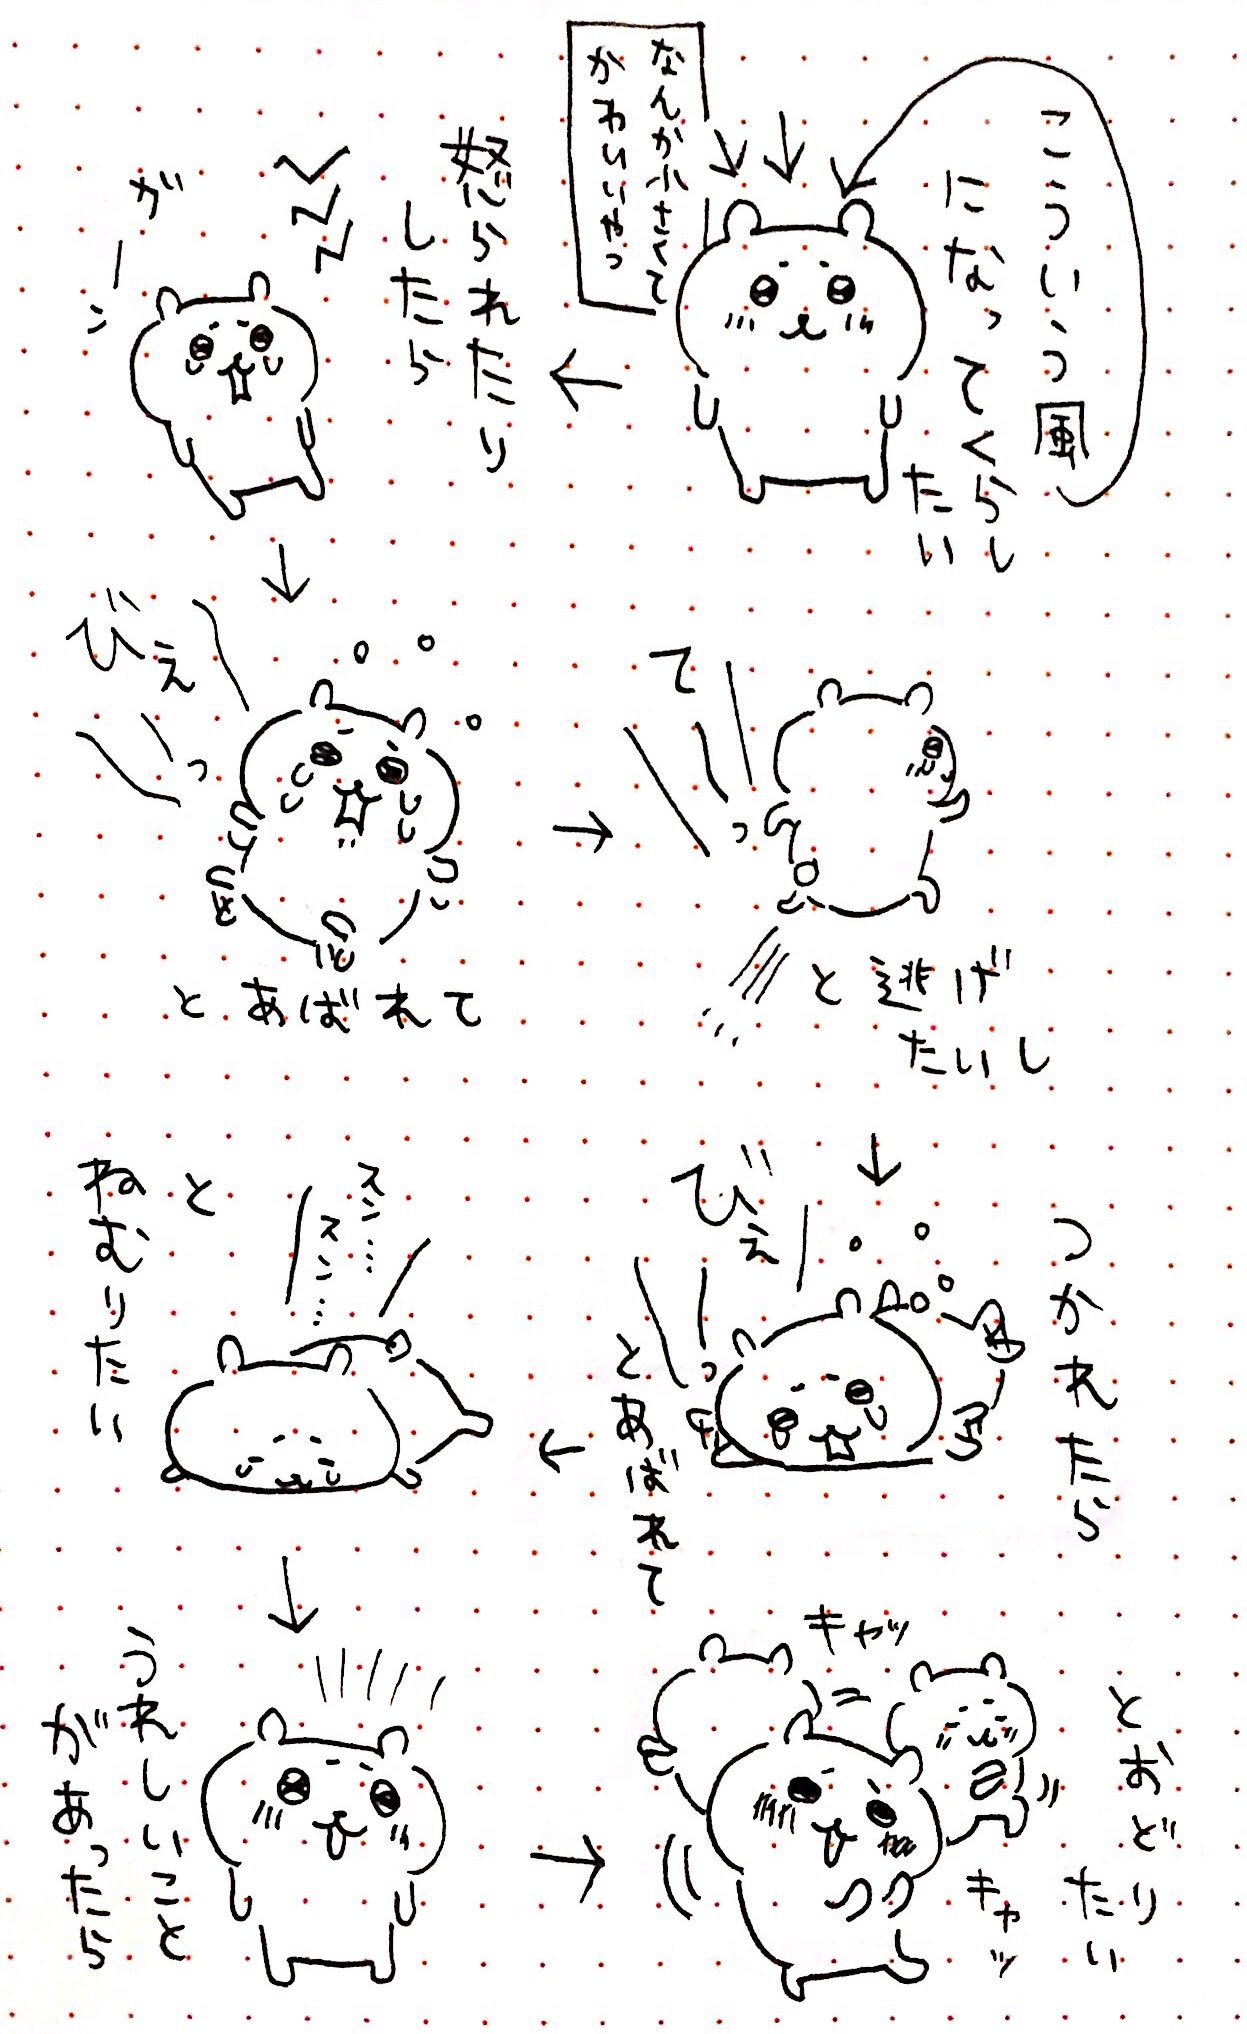 こういう風
になってくらし
たい
なんか小さくて
かわいいやつ
怒られたり
したら
が
ーン
びえ
っ
とあばれて
て
っ
と逃げ
たいし
つかれたら
びえ
っ
とあばれて
スン…
スン…
と
ねむりたい
うれしいこと
があったら
キャッ
キャッ
とおどり
たい